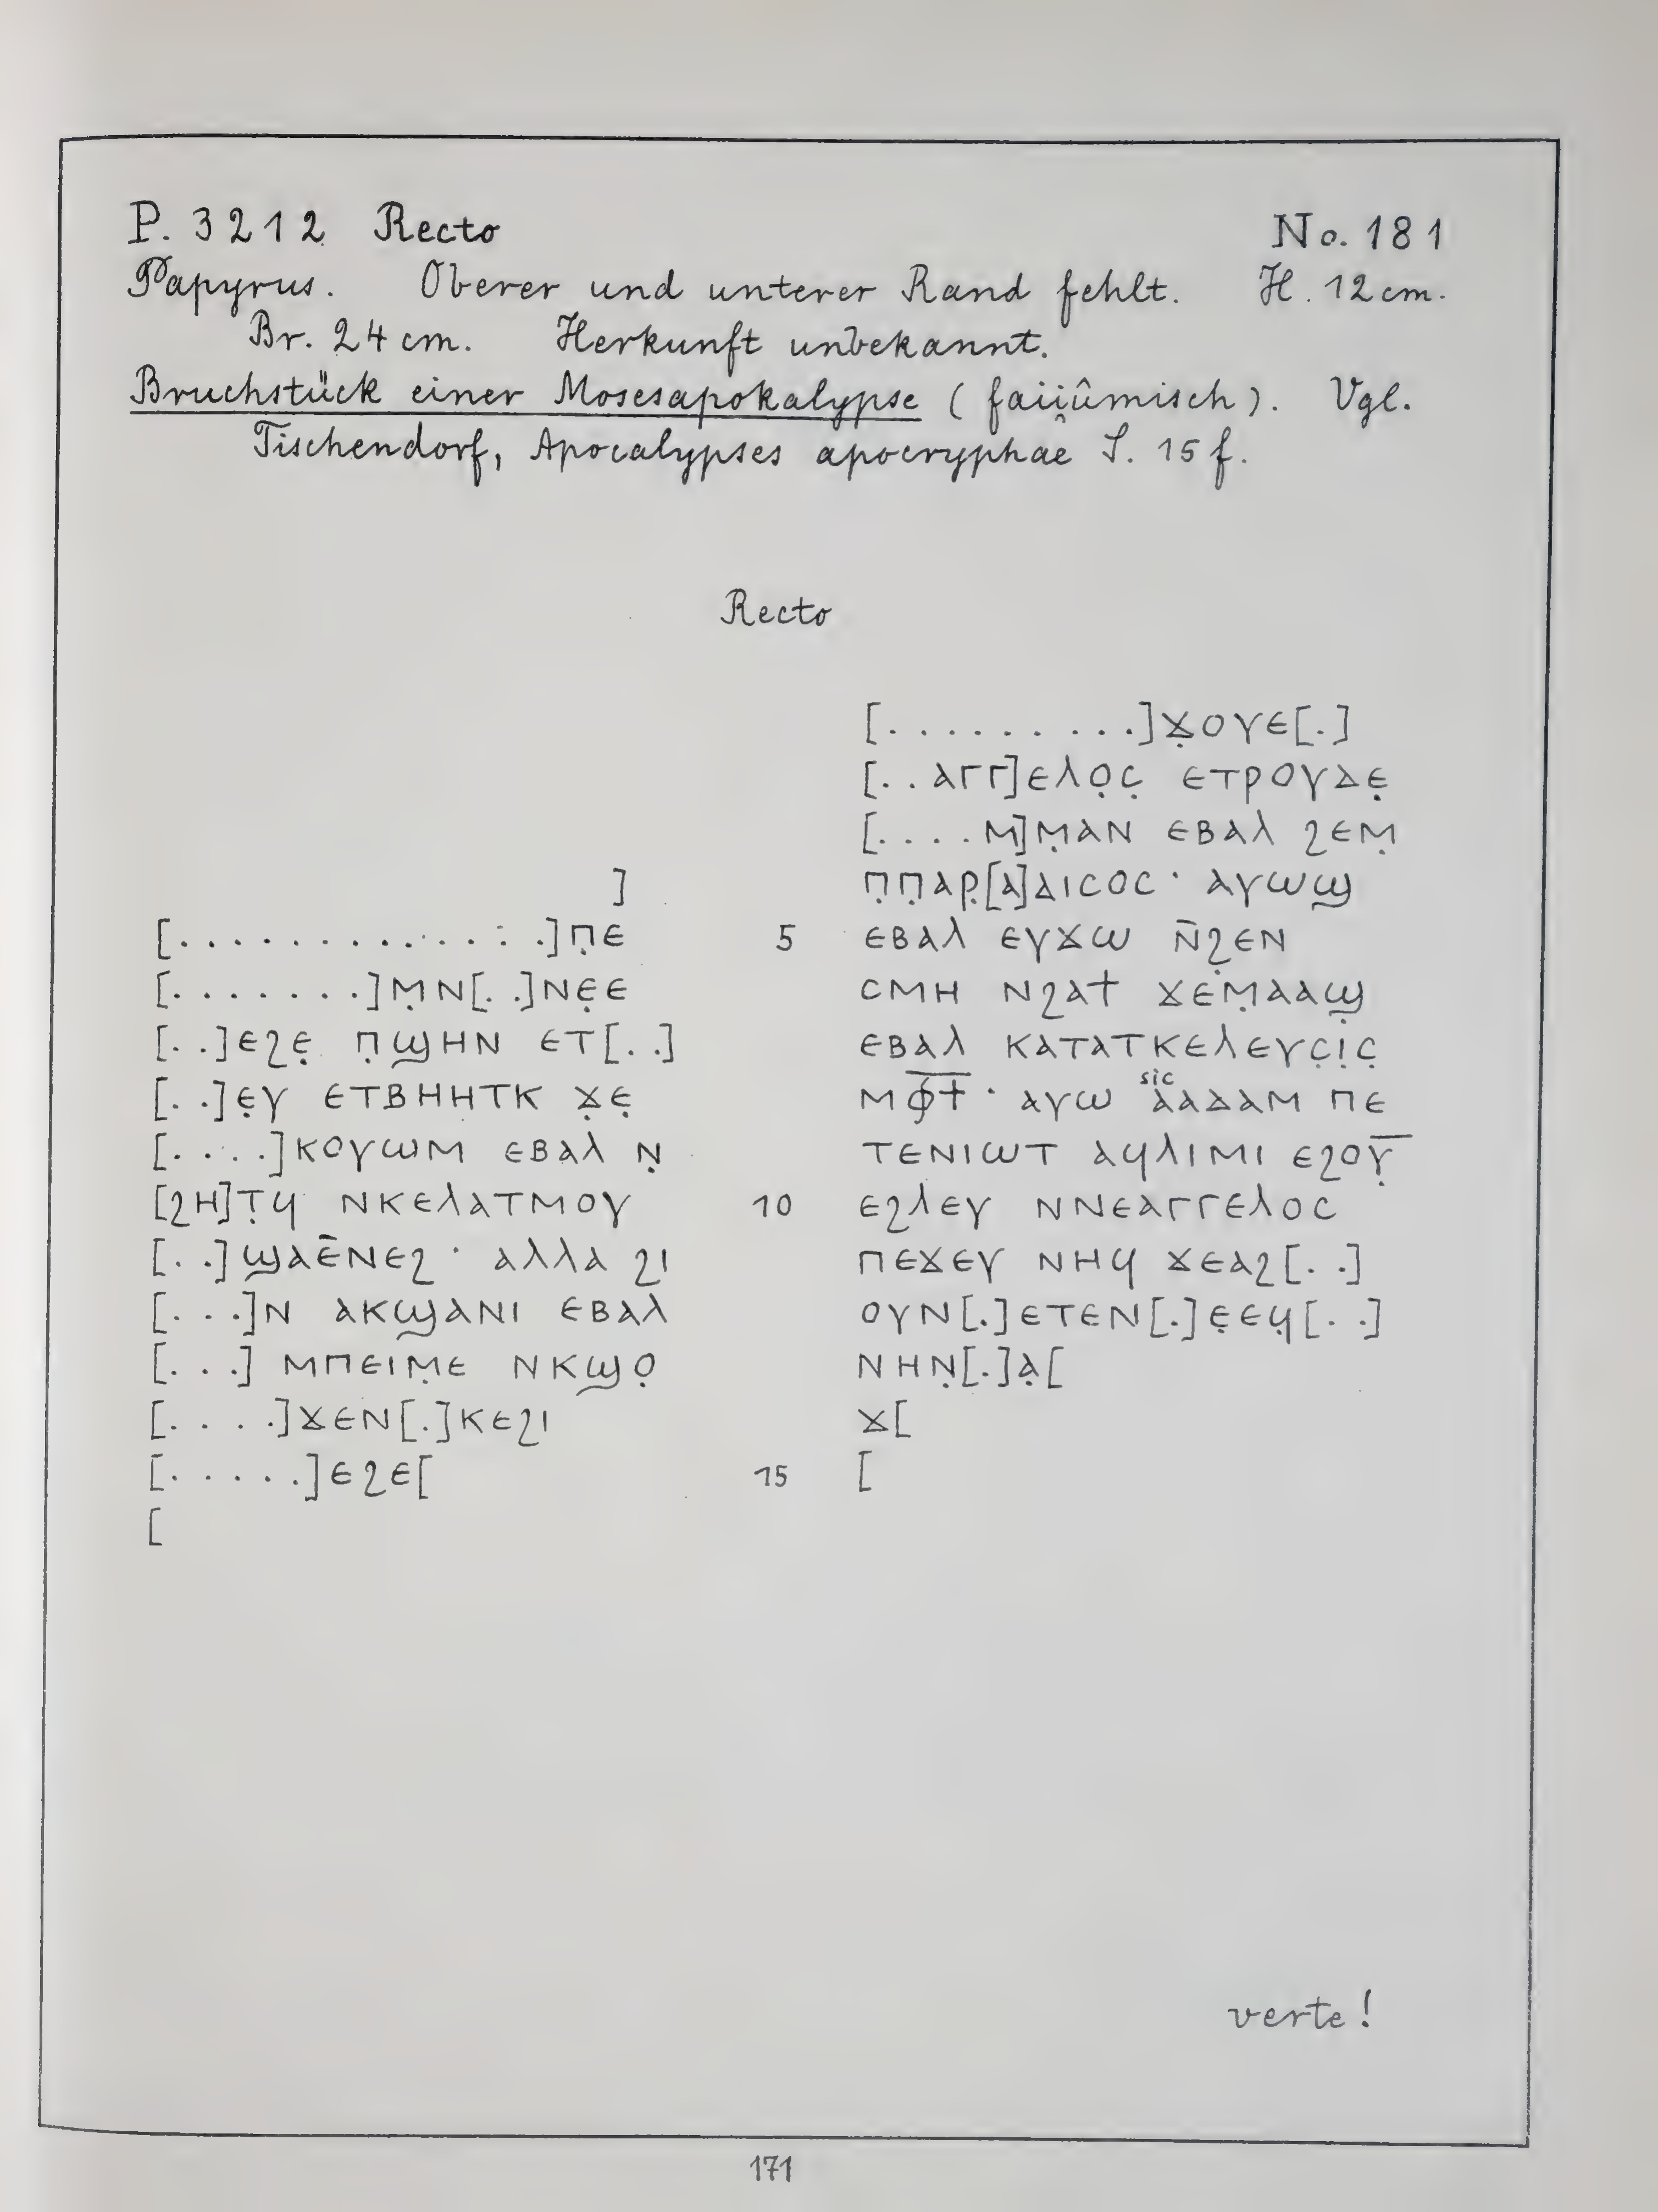 P. 3212 Recto No. 181
Papyrus. Oberer und unterer Rand fehlt. H. 12 cm.
Br. 24 cm. Herkunft unbekannt.
Bruchstück einer Mosesapokalypse (faijûmisch). Vgl.
Tischendorf, Apocalypses apocryphae S. 15 f.
Recto
]
[. . . . . . . . . . . . . .]ⲡ̣ⲉ
[. . . . . . .]ⲙ̣ⲛ[. .]ⲛⲉ̣ⲉ
[. .]ⲉϩⲉ̣ ⲡ̣ϣⲏⲛ ⲉⲧ[. .]
[. .]ⲉ̣ⲩ ⲉⲧⲃⲏⲏⲧⲕ ϫ̣ⲉ̣
[. . . .]ⲕⲟⲩⲱⲙ ⲉⲃⲁⲗ ⲛ̣
[ϩⲏ]ⲧ̣ϥ ⲛⲕⲉⲗⲁⲧⲙⲟⲩ
[. .]ϣⲁⲉ̄ⲛⲉϩ · ⲁⲗⲗⲁ ϩⲓ
[. . .]ⲛ ⲁⲕϣⲁⲛⲓ ⲉⲃⲁⲗ
[. . .] ⲙⲡⲉⲓⲙ̣ⲉ ⲛⲕϣⲟ̣
[. . . .]ϫⲉⲛ[.]ⲕⲉϩⲓ
[. . . . .]ⲉϩⲉ[
[
[. . . . . . . . . .]ϫ̣ⲟⲩⲉ[.]
[. . ⲁⲅⲅ]ⲉⲗⲟ̣ⲥ̣ ⲉⲧⲣⲟⲩⲇⲉ̣
[. . . . ⲙ]ⲙ̣ⲁⲛ ⲉⲃⲁⲗ ϩⲉⲙ̣
ⲡ̣ⲡ̣ⲁⲣ̣[ⲁ]ⲇⲓⲥⲟⲥ · ⲁⲩⲱϣ
5 ⲉⲃⲁⲗ ⲉⲩϫⲱ ⲛ̄ϩ̣ⲉⲛ
ⲥⲙⲏ ⲛϩⲁϯ ϫⲉⲙ̣ⲁⲁϣ̣
ⲉⲃⲁⲗ ⲕⲁⲧⲁⲧⲕⲉⲗⲉⲩⲥ̣ⲓ̣ⲥ̣
ⲙⲫ̅ϯ̅ · ⲁⲩⲱ sic ⲁⲁⲇⲁⲙ ⲡⲉ
ⲧⲉⲛⲓⲱⲧ ⲁϥⲗⲓⲙⲓ ⲉϩⲟⲩ̣̅
10 ⲉϩⲗⲉⲩ ⲛⲛⲉⲁⲅⲅⲉⲗⲟⲥ
ⲡⲉϫⲉⲩ ⲛⲏϥ ϫⲉⲁϩ[. .]
ⲟⲩⲛ[.]ⲉⲧⲉⲛ[.]ⲉ̣ⲉϥ̣[. .]
ⲛⲏⲛ̣[.]ⲁ̣[
ϫ[
15 [
verte!
171